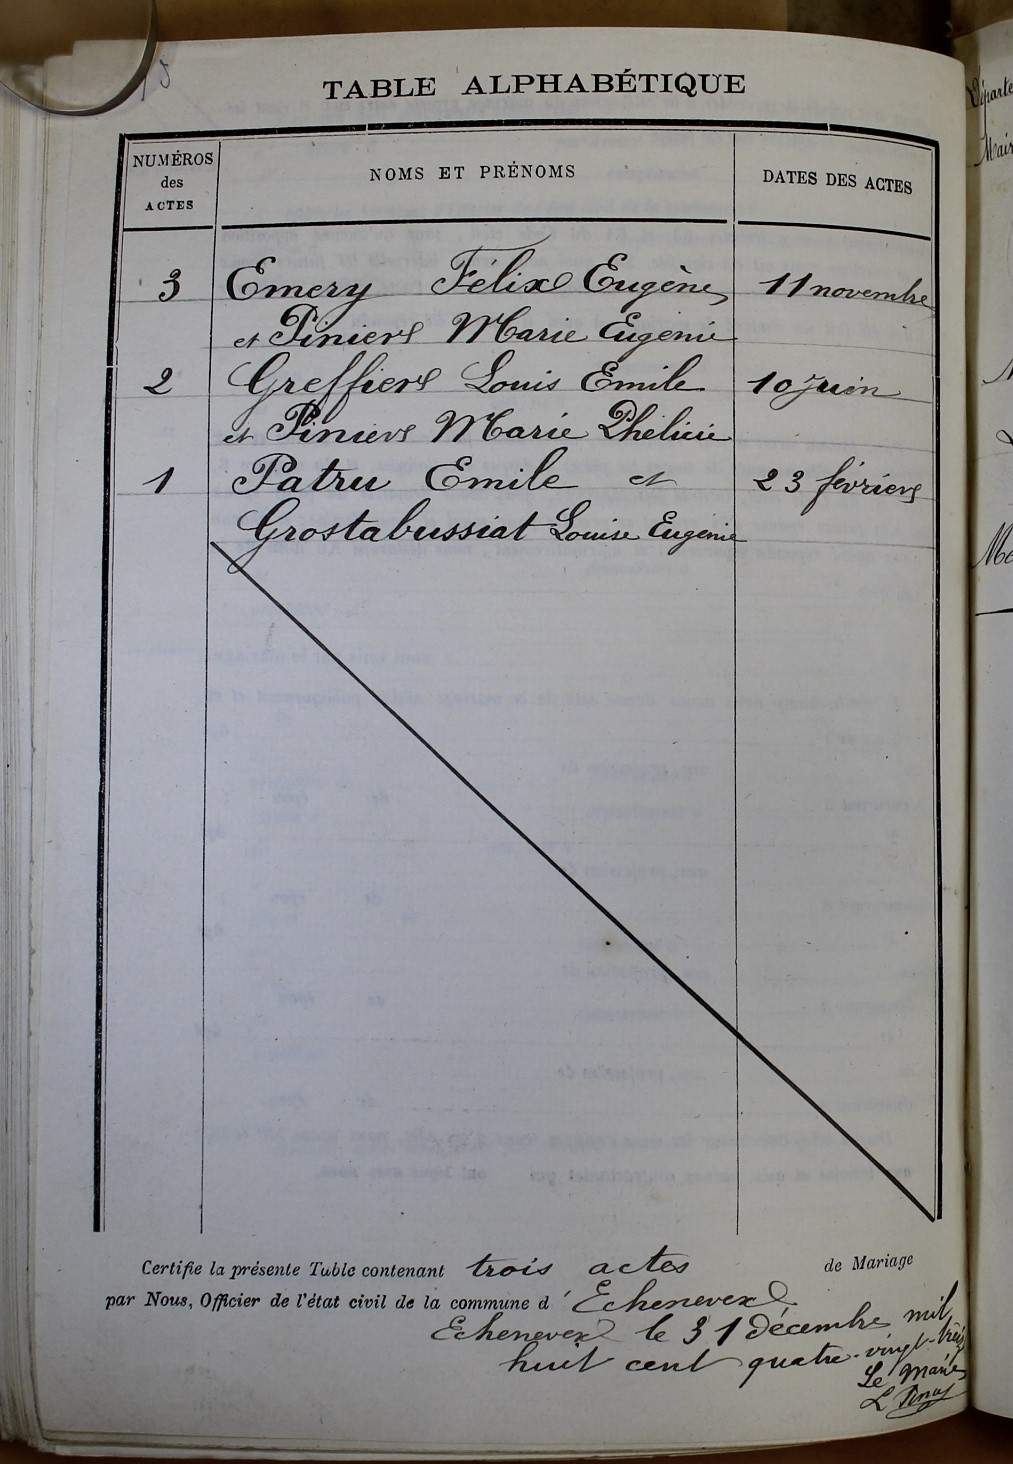 TABLE ALPHABÉTIQUE
NUMÉROS
des
ACTES
NOMS ET PRÉNOMS
DATES DES ACTES
3 Emery Félix Eugène 11 novembre
et Piniers Marie Eugénie
2 Greffiers Louis Emile 10 juin
et Piniers Marie Phélicie
1 Patru Emile et 23 février
Grostabussiat Louise Eugénie
Certifie la présente Table contenant trois actes de Mariage
par Nous, Officier de l'état civil de la commune d'Echenevex
Echenevex le 31 décembre mil
huit cent quatre-vingt-treis
Le Maire
Départe
Mair